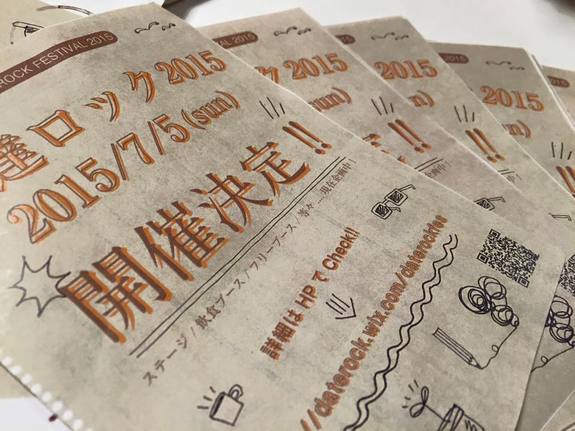 ROCK FESTIVAL 2015
達ロック 2015
2015/7/5 (sun)
開催決定!!
ステージ / 飲食ブース / フリーブース / 等々…現在企画中!
詳細は HP で Check!!
//daterock.wix.com/daterockfes
2015
2015
2015